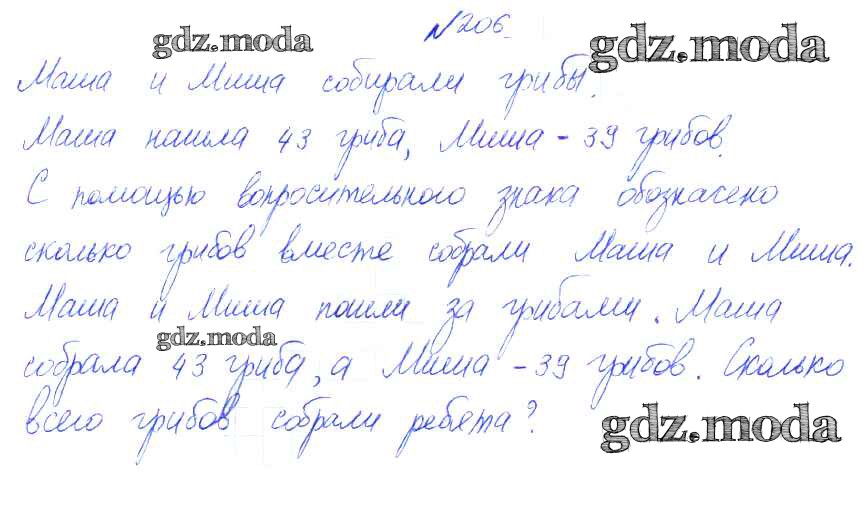 №206.
gdz.moda
gdz.moda
Маша и Миша собирали грибы.
Маша нашла 43 гриба, Миша - 39 грибов.
С помощью вопросительного знака обозначено
сколько грибов вместе собрали Маша и Миша.
Маша и Миша пошли за грибами. Маша
gdz.moda
собрала 43 гриба, а Миша - 39 грибов. Сколько
всего грибов собрали ребята?
gdz.moda